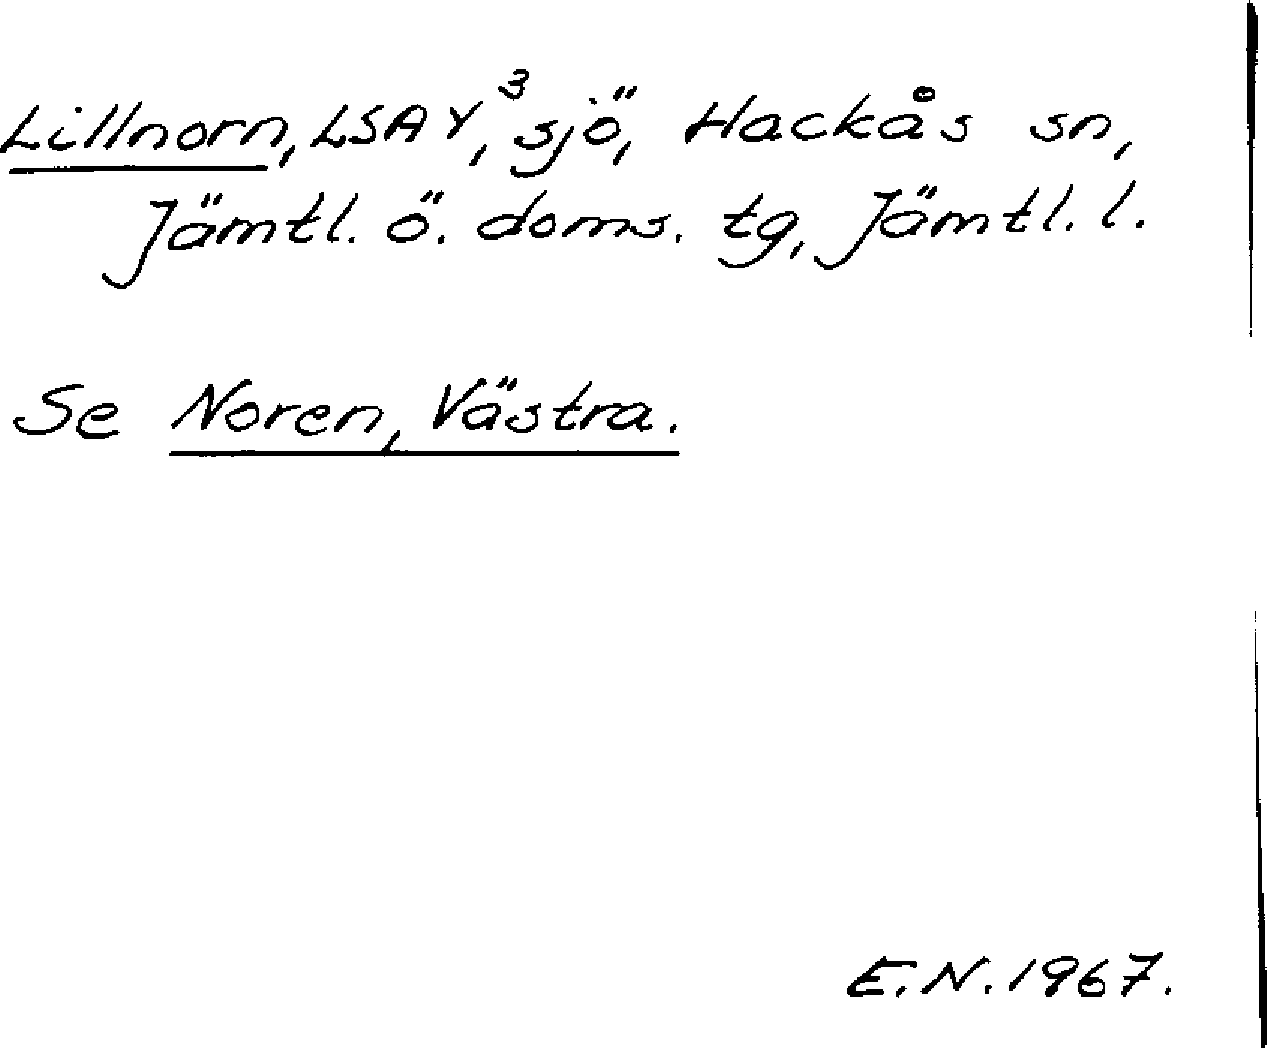 Lillnorn, LSA Y,³ sjö, Hackås sn,
Jämtl. ö. doms. tg, Jämtl. l.
Se Noren, Västra.
E.N. 1967.